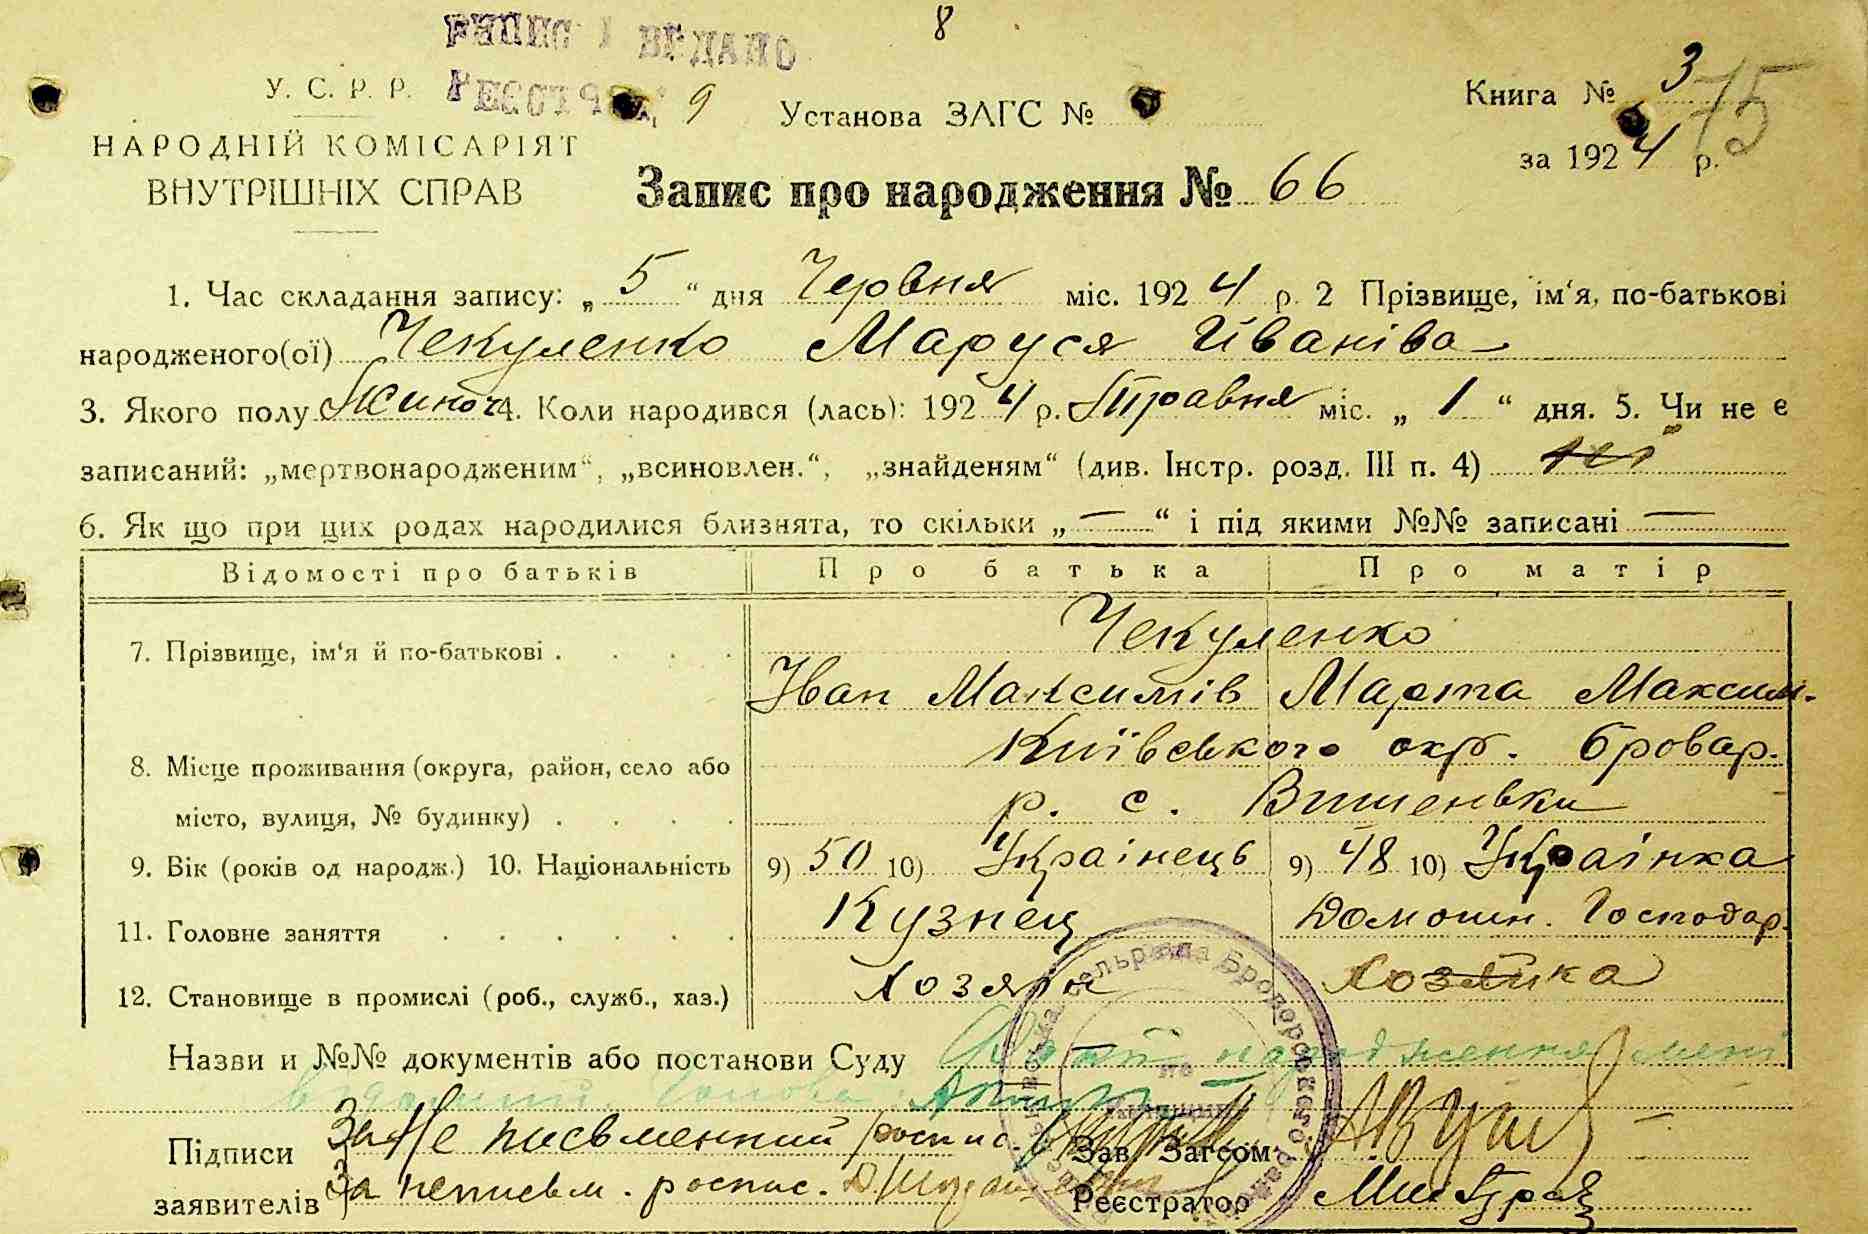 8
У. С. Р. Р.
НАРОДНІЙ КОМІСАРІЯТ
ВНУТРІШНІХ СПРАВ
9
Установа ЗАГС №
Книга № 3
75
за 1924 р.
Запис про народження № 66
1. Час складання запису: „ 5 “ дня Червня міс. 1924 р. 2 Прізвище, ім‘я, по-батькові
народженого(ої) Чекуленко Маруся Иваніва
3. Якого полу Жиноч 4. Коли народився (лась): 1924 р. Травня міс. „ 1 “ дня. 5. Чи не є
записаний: „мертвонародженим“, „всиновлен.“, „знайденям“ (див. Інстр. розд. III п. 4)
6. Як що при цих родах народилися близнята, то скільки „ — “ і під якими №№ записані —
Відомості про батьків Про батька Про матір
Чекуленко
7. Прізвище, ім‘я й по-батькові . . . .
Іван Максимів Марта Максимі-
Київського окр. Бровар.
8. Місце проживання (округа, район, село або
місто, вулиця, № будинку) . . . .
р. с. Вишеньки
9. Вік (років од народж.) 10. Національність 9) 50 10) Українець 9) 48 10) Українка
11. Головне заняття . . . . . . Кузнец Домошн. Господар.
12. Становище в промислі (роб., служб., хаз.) Хозяін Хозяйка
Назви и №№ документів або постанови Суду народження мені
Підписи За Не письменний роспис. Зав. Загсом
заявителів За неписьм. роспис. Реєстратор